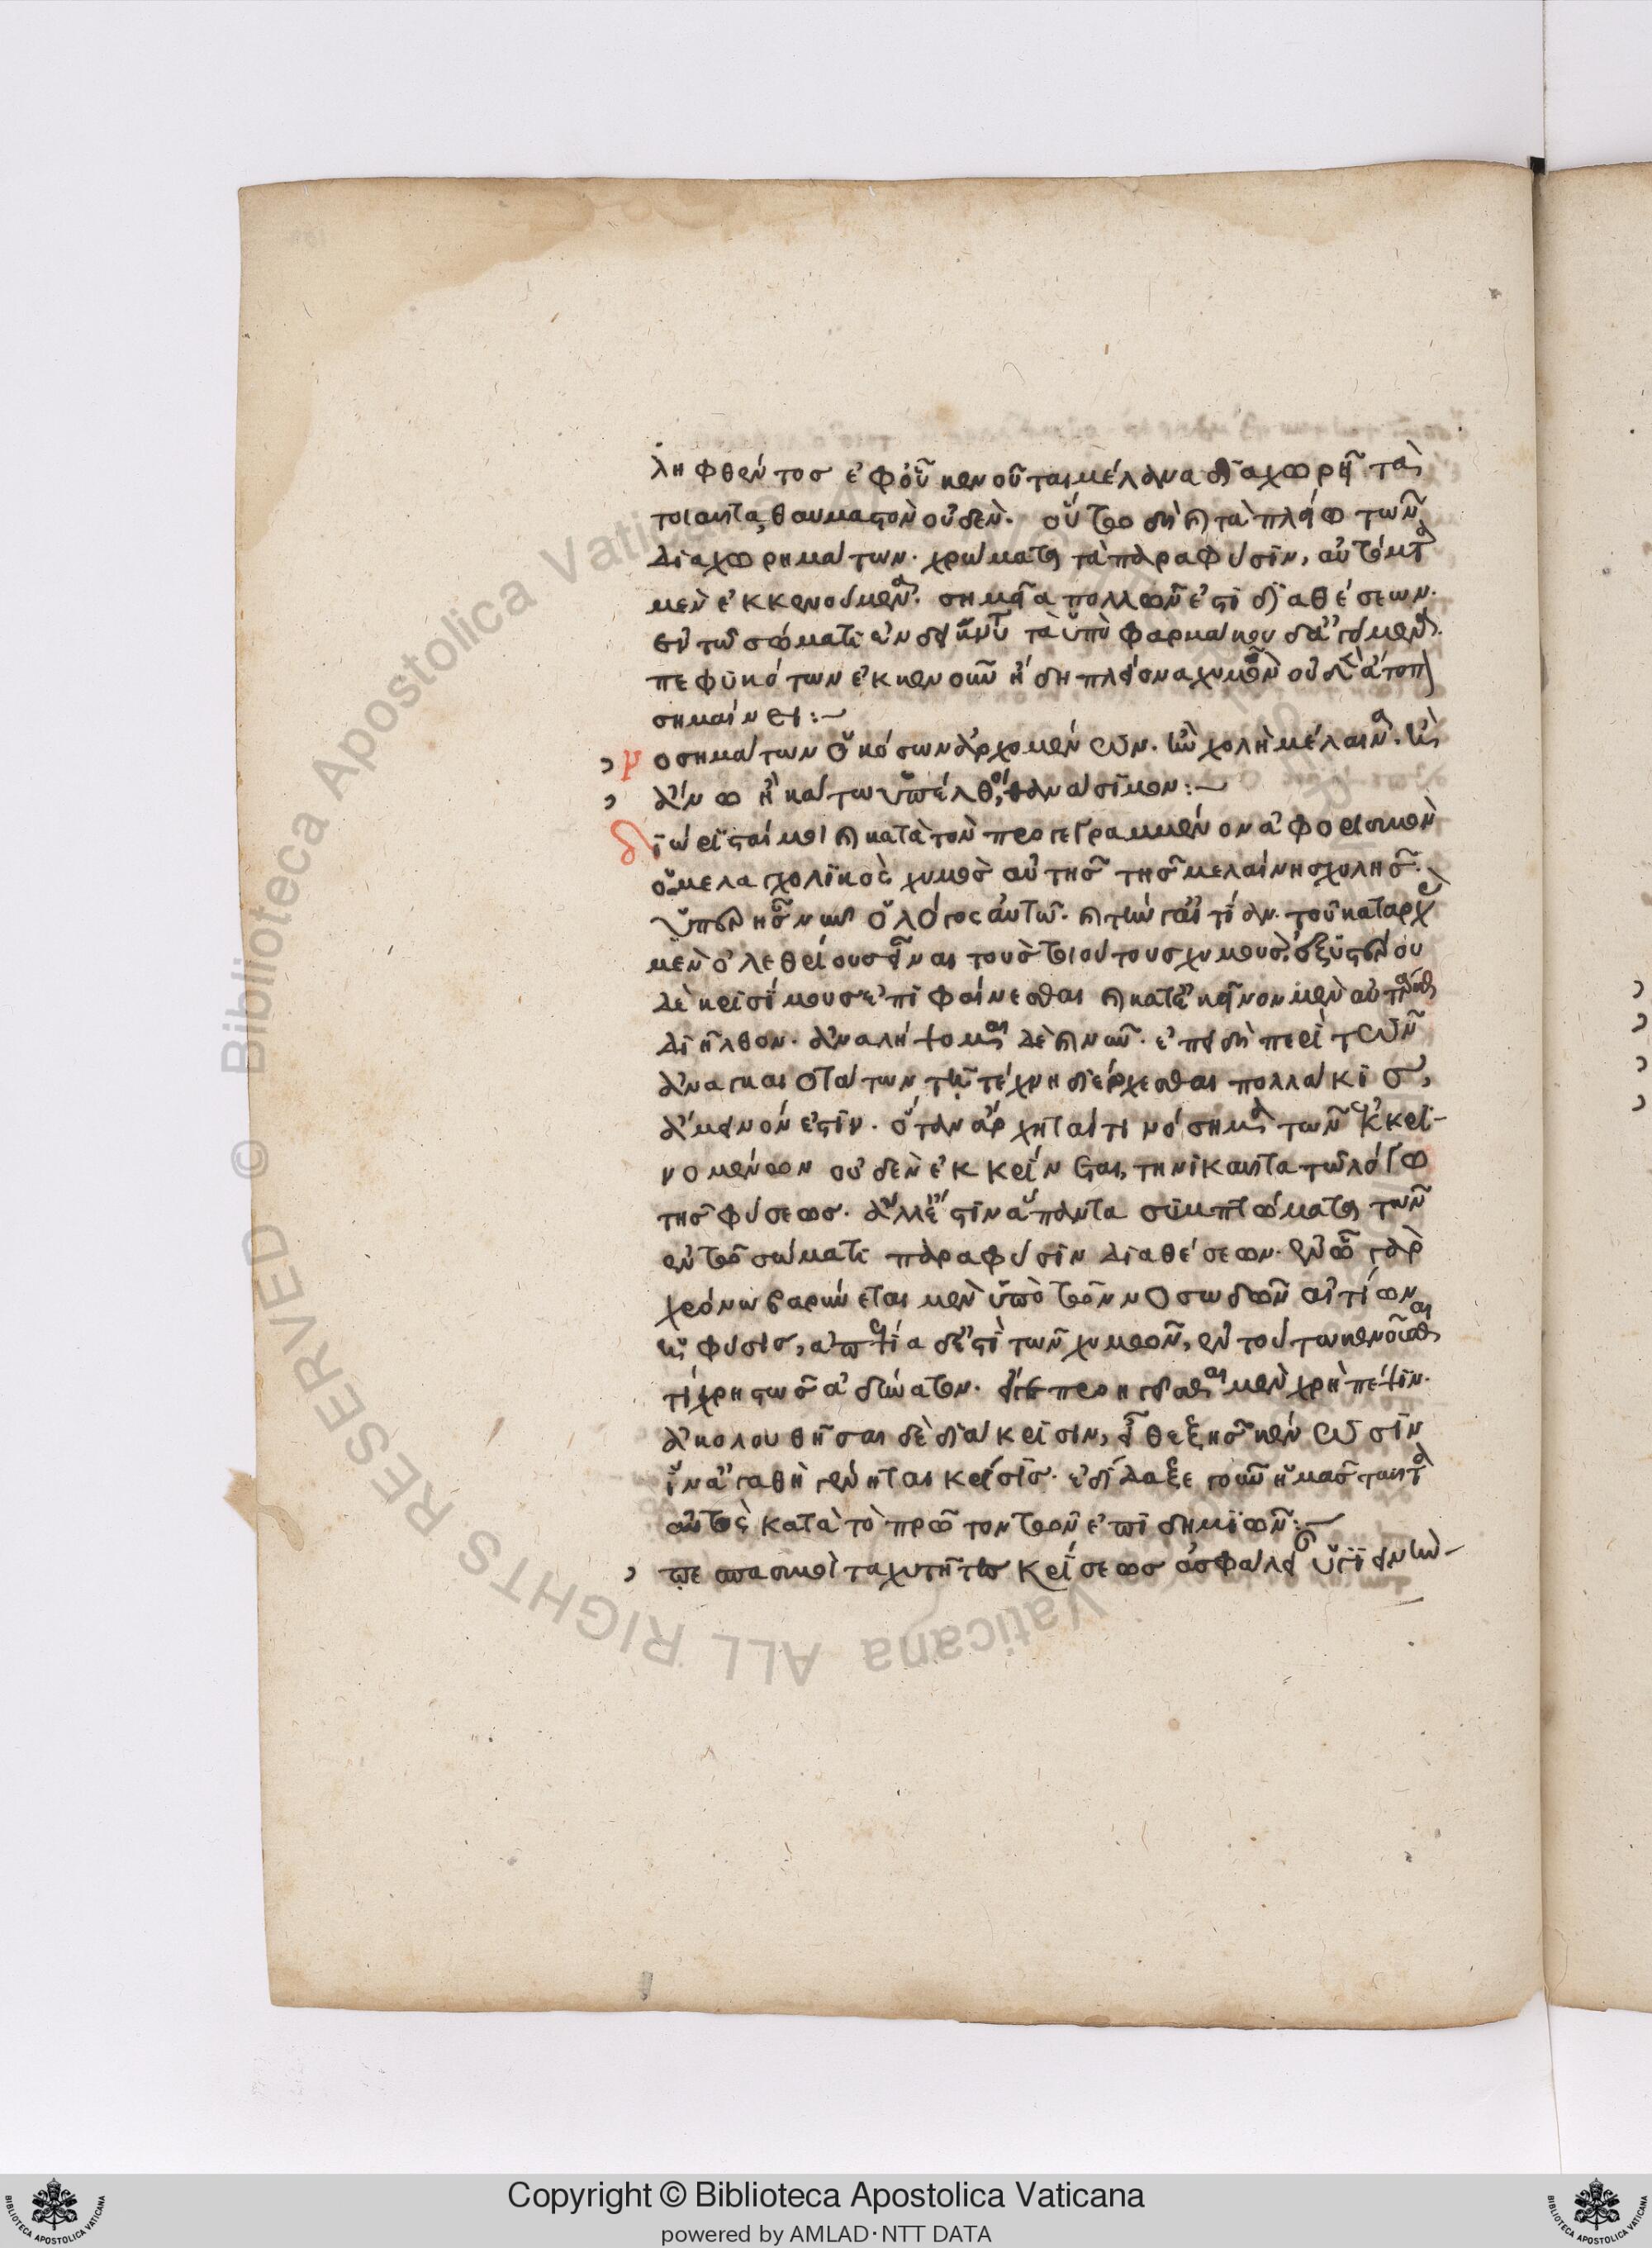 ληφθέντος ἐφ' οὗ κενοῦται μέλανα διαχωρῆται
τοιαῦτα, θαυμαστὸν οὐδέν. οὕτω δὴ καὶ τὰ πλείω τῶν
διαχωρημάτων χρώματα τὰ παρὰ φύσιν, αὐτόματα
μὲν ἐκκενούμενα σημεῖα πολλῶν ἐστι διαθέσεων
ἐν τῷ σώματι τὰ ὑπὸ φαρμάκου δ' ἀγόμενα
πεφυκότων ἐκκενοῦν ἤδη πλείονα χυμὸν οὐδὲν ἄτοπον
σημαίνει:~
νοσημάτων ὁκόσων ἀρχομένων. ἢν χολὴ μέλαινα ἢ
ἄνω ἢ κάτω ὑπέλθοι, θανάσιμον:~
διώρισταί μοι καὶ κατὰ τὸν προγεγραμμένον ἀφορισμὸν
ὁ μελαγχολικὸς χυμὸς αὐτῆς τῆς μελαίνης χολῆς.
ὑπὲρ ἧς νῦν ὁ λόγος αὐτῷ. καὶ τὴν αἰτίαν τοῦ κατ' ἀρχὰς
μὲν ὀλεθρίους εἶναι τοὺς τοιούτους χυμούς, ἐξ ὑστέρου
δὲ κρισίμους ἐπιφαίνεσθαι καὶ κατ' ἐκεῖνον μὲν αὐτάρκως
διῆλθον. ἀναλήψομαι δὲ καὶ νῦν. ἐπειδὴ περὶ τῶν
ἀναγκαιοτάτων τῇ τέχνῃ διέρχεσθαι πολλάκις,
ἄμεινόν ἐστιν. ὅταν ἄρχηταί τι νόσημα τῶν ἐκκρι-
νομένων οὐδὲν ἐκκρίνεται, τηνικαῦτα τῷ λόγῳ
τῆς φύσεως. ἀλλ' ἔστιν ἅπαντα συμπτώματα τῶν
ἐν τῷ σώματι παρὰ φύσιν διαθέσεων. ἐν ᾧ γὰρ
χρόνῳ βαρύνεται μὲν ὑπὸ τῶν νοσωδῶν αἰτίων
ἡ φύσις, ἀπεψία δ' ἐστὶ τῶν χυμῶν, ἐν τούτῳ κενοῦσθαί
τι χρηστῶς ἀδύνατον. προηγεῖσθαι μὲν χρὴ πέψιν.
ἀκολουθῆσαι δὲ διάκρισιν, εἶθ' ἑξῆς κένωσιν
ἵν' ἀγαθὴ γένηται κρίσις. ἐδίδαξε γοῦν ἡμᾶς ταῦτα
αὐτὸς κατὰ τὸ πρῶτον τῶν ἐπιδημιῶν:~
πεπασμοὶ ταχυτῆτα κρίσεως ἀσφάλειαν ὑγιεινὴν